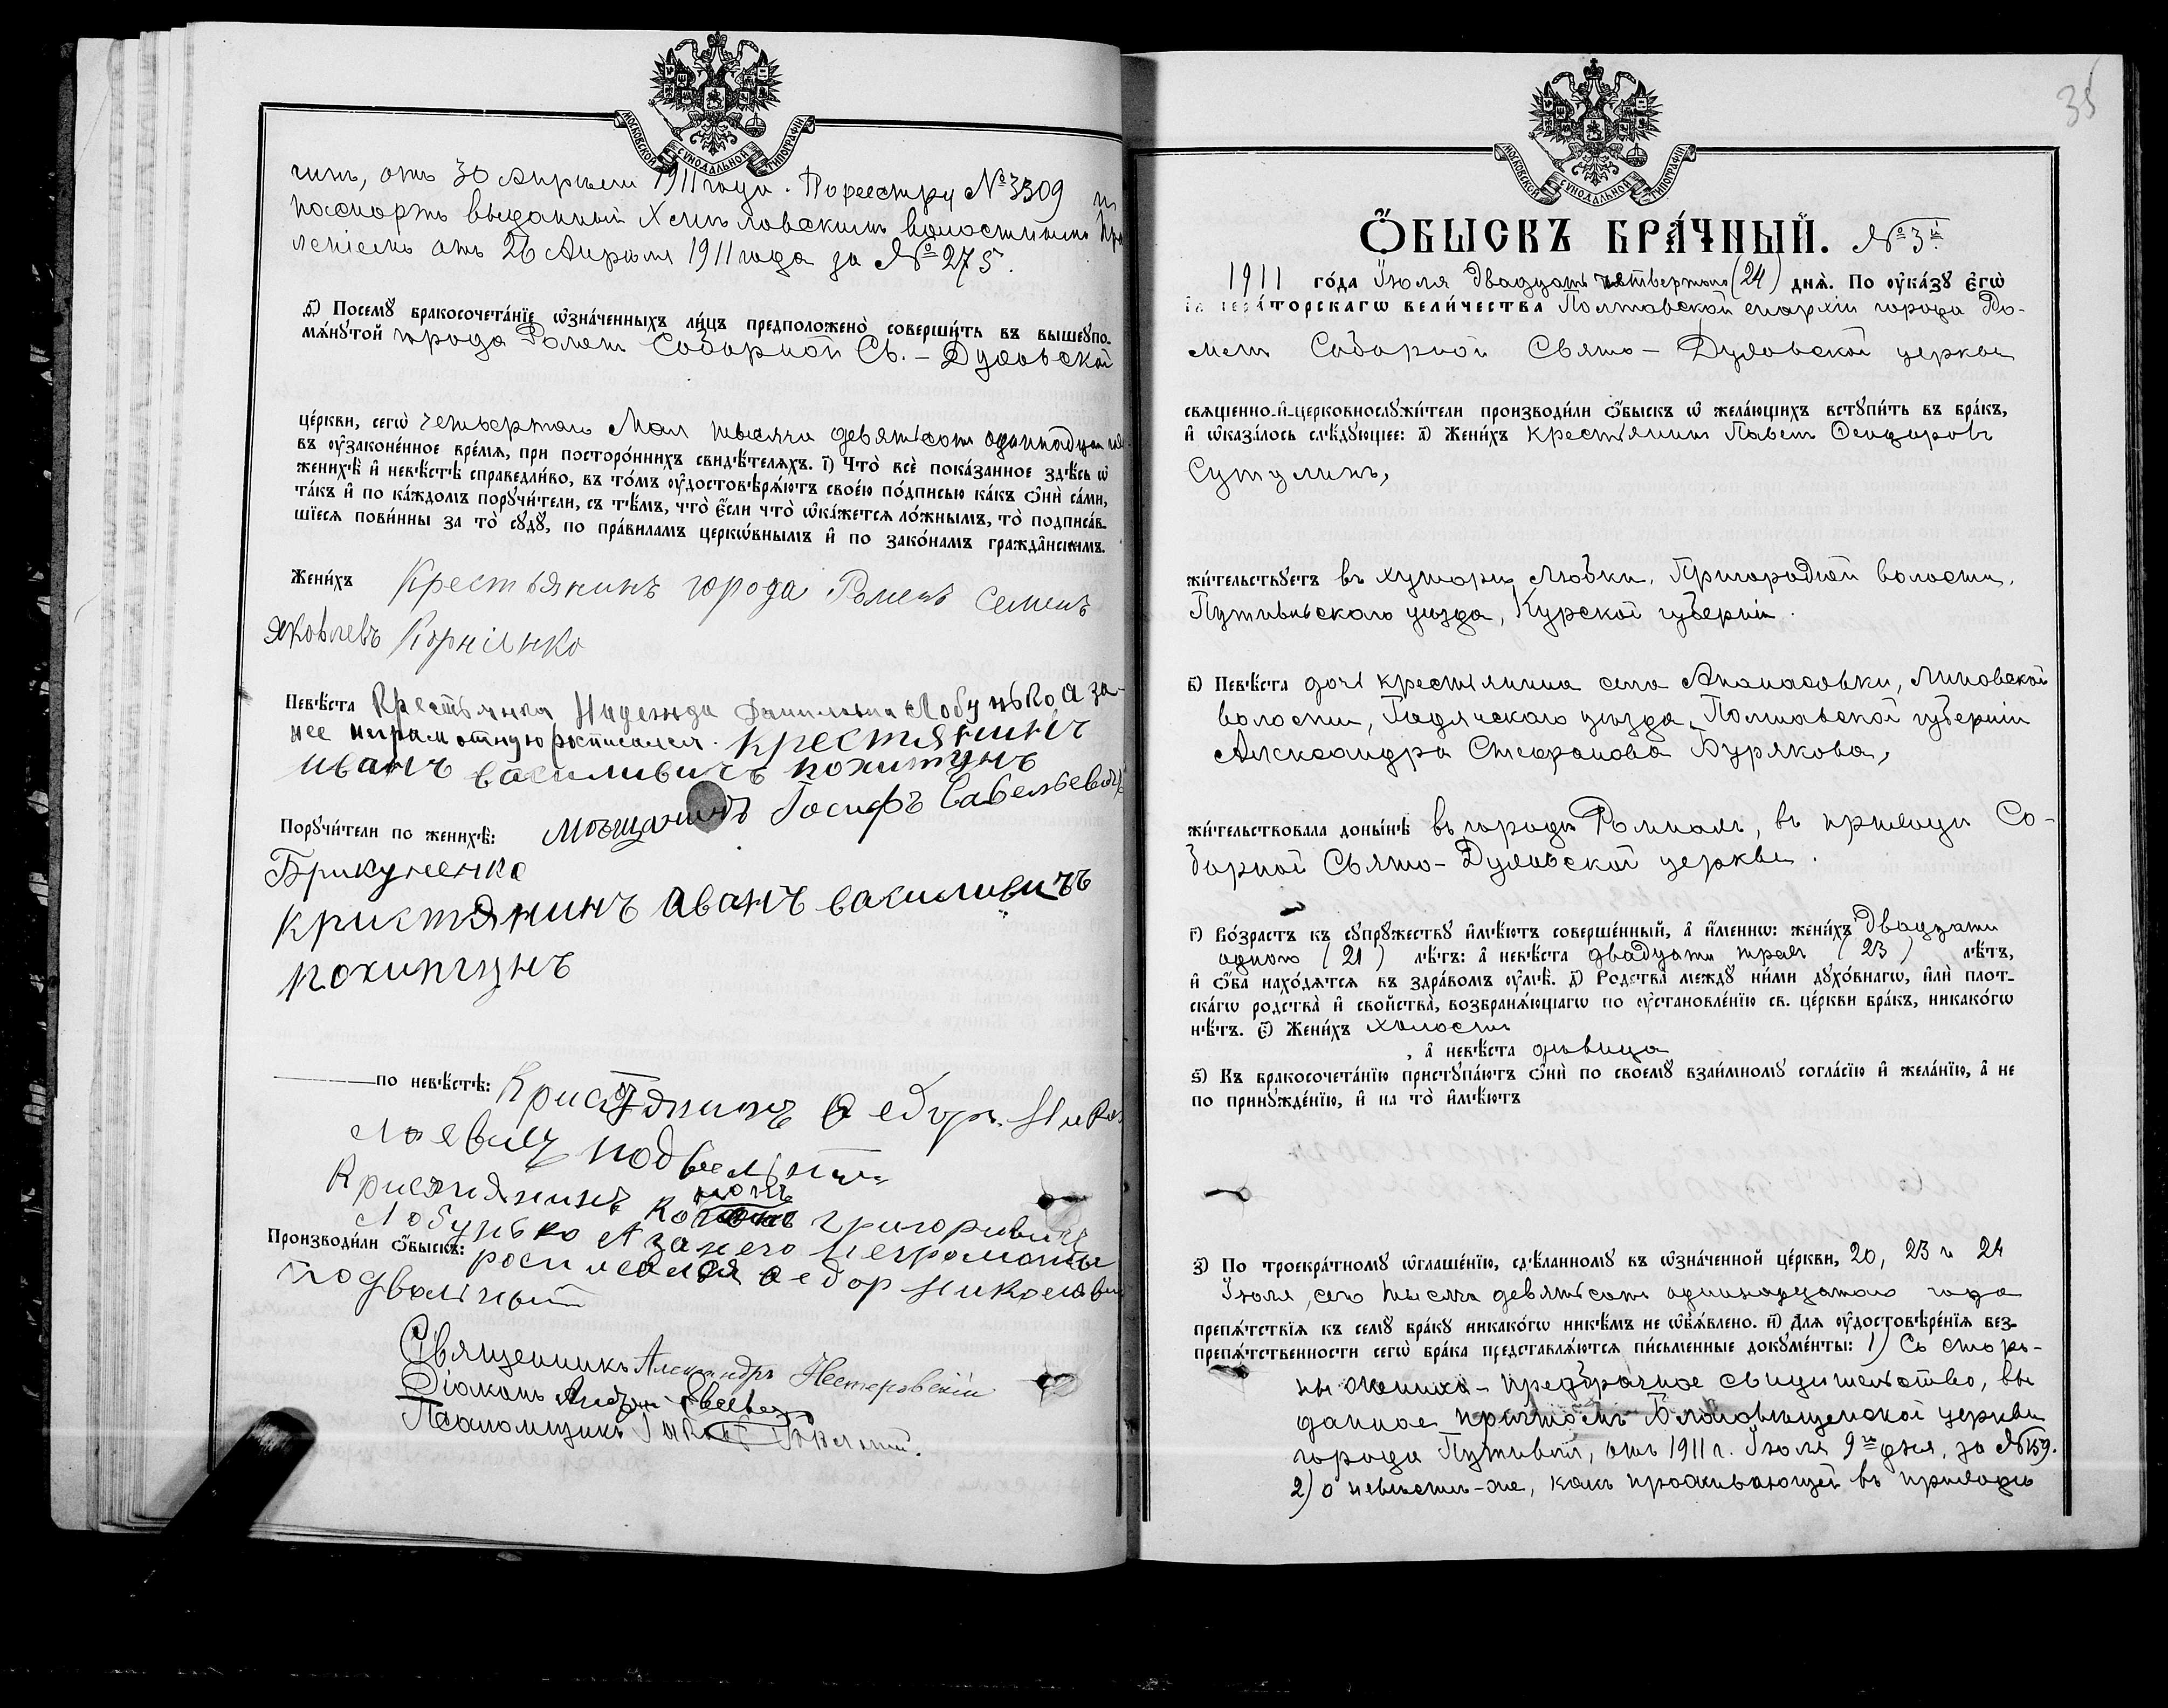 МОСКОВСКОЙ СѴНОДАЛЬНОЙ ТИПОГРАФІИ
отъ 30 Апрѣля 1911 года. По реестру № 3309 и
паспортъ выданный волостнымъ Пра
леніемъ отъ 26 Апрѣля 1911 года за № 275.
д҃) Посемꙋ бракосочета́нїе ѡ҆зна́ченныхъ ли́цъ предположено̀ соверши́ть въ вышеꙋпо-
мѧ́нꙋтой города Ромен Соборной Св.-Духовской
це́ркви, сегѡ̀ четвертаго Мая тысяча девятьсотъ одиннадцат
въ ᲂу҆зако́ненное вре́мѧ, при посторо́ннихъ свидѣ́телѧхъ. і҃) Что̀ всѐ пока́занное здѣ́сь ѡ҆
женихѣ̀ и҆ невѣ́стѣ справедли́во, въ то́мъ ᲂу҆достовѣрѧ́ютъ свое́ю по́дписью ка́къ ѻ҆нѝ са́ми,
та́къ и҆ по ка́ждомъ порꙋчи́тели, съ тѣ́мъ, что̀ є҆́сли что̀ ѡ҆ка́жетсѧ ло́жнымъ, то̀ подписа́в-
шїесѧ пови́нны за то̀ сꙋдꙋ̀, по пра́виламъ церкѡ́внымъ и҆ по зако́намъ гражда́нскимъ.
Жени́хъ Крестьянинъ города Роменъ Семенъ
Яковлевъ Корніенко
Невѣ́ста Крестьянка Надежда Даниловна Лобунько, а за
нее неграмотную росписался. крестянинъ
иванъ василивичъ похитунъ
Порꙋчи́тели по женихѣ̀: мѣщанинъ Іосифъ Савельевичъ
Брикуненко
кристянинъ иванъ василивичъ
похитунъ
по невѣ́стѣ: Кристянинъ Ѳедоръ Нико
лаевичъ подвельный
Кристиянинъ григоривичъ
Лобунько А за него неграмотны
Производи́ли ѻ҆́быскъ: росписался ѳедор николаеви
подвальный
Священникъ Александръ Нестеровскій
Діаконъ
Псаломщикъ
35
МОСКОВСКОЙ СѴНОДАЛЬНОЙ ТИПОГРАФІИ
Ѻ҆́БЫСКЪ БРА́ЧНЫЙ. № 3й
1911 го́да Іюля двадцать четвертаго (24) днѧ̀. По ᲂу҆ка́зꙋ Є҆гѡ̀
И҆мпера́торскагѡ вели́чества Полтавской епархіи города Ро-
менъ Соборной Свято-Духовской церкви
свѧще́нно-и҆-церковнослꙋжи́тели производи́ли ѻ҆́быскъ ѡ҆ жела́ющихъ встꙋпи́ть въ бра́къ,
и҆ ѡ҆каза́лось слѣ́дꙋющее: а҃) Жени́хъ крестьянинъ Павелъ Ѳеодоровъ
Сутулинъ,
жи́тельствꙋетъ въ хуторѣ Любки, Пригородней волости,
Путивльскаго уѣзда, Курской губерніи.
в҃) Невѣ́ста дочь крестьянина села Ананасовки, Липовской
волости, Гадячскаго уѣзда, Полтавской губерніи
Александра Стефанова Бурякова,
жи́тельствовала доны́нѣ въ городѣ Ромнахъ, въ приходѣ Со-
борной Свято-Духовской церкви.
г҃) Во́зрастъ къ сꙋпрꙋжествꙋ и҆мѣ́ютъ соверше́нный, а҆ и҆́меннѡ: жени́хъ двадцати
одного (21) лѣ́тъ: а҆ невѣ́ста двадцати трехъ (23) лѣ́тъ,
и҆ ѻ҆́ба нахо́дѧтсѧ въ здра́вомъ ᲂу҆мѣ̀. д҃) Родства̀ междꙋ ни́ми дꙋхо́внагѡ, и҆лѝ плот-
ска́гѡ родства̀ и҆ сво́йства̀, возбранѧ́ющагѡ по ᲂу҆становле́нїю св. це́ркви бра́къ, никако́гѡ
нѣ́тъ. є҃) Жени́хъ холостъ
, а҆ невѣ́ста дѣвица
ѕ҃) Къ бракосочета́нїю пристꙋпа́ютъ ѻ҆нѝ по своемꙋ̀ взаи́мномꙋ согла́сїю и҆ жела́нїю, а҆ не
по принꙋжде́нїю, и҆ на то̀ и҆мѣ́ютъ
з҃) По троекра́тномꙋ ѡ҆глаше́нїю, сдѣ́ланномꙋ въ ѡ҆зна́ченной це́ркви, 20, 23 и 24
Іюля, сего тысяча девятьсотъ одиннадцатаго года
препѧ́тствїѧ къ семꙋ̀ бра́кꙋ никако́гѡ никѣ́мъ не ѡ҆б̾ѧ́влено. и҃) Длѧ ᲂу҆достовѣре́нїѧ без-
препѧ́тственности сегѡ̀ бра́ка представлѧ́ютсѧ пи́сьменные докꙋме́нты: 1) Съ сторо-
ны жениха - предбрачное свидѣтельство, вы
данное причтомъ Благовѣщенской церкви
города Путивля, отъ 1911 г. Іюля 9го дня, за № 159.
2) о невѣстѣ-же, какъ проживающей въ приходѣ